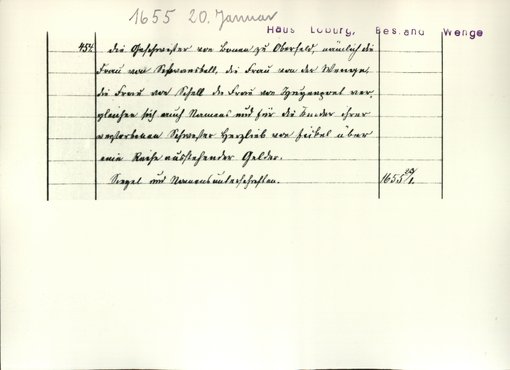 1655 20. Januar
Haus Loburg, Bestand Wenge
454 die Geschwister von Bonen zu Oberfeld, nämlich die
Frau von Schwansbell, die Frau von der Wenge,
die Frau von Schell die Frau von ver-
gleichen sich auch Namens und für die Kinder ihrer
verstorbenen Schwester Herzlieb von über
eine Reihe ausstehender Gelder.
Siegel und Namensunterschriften. 1655 20/1.